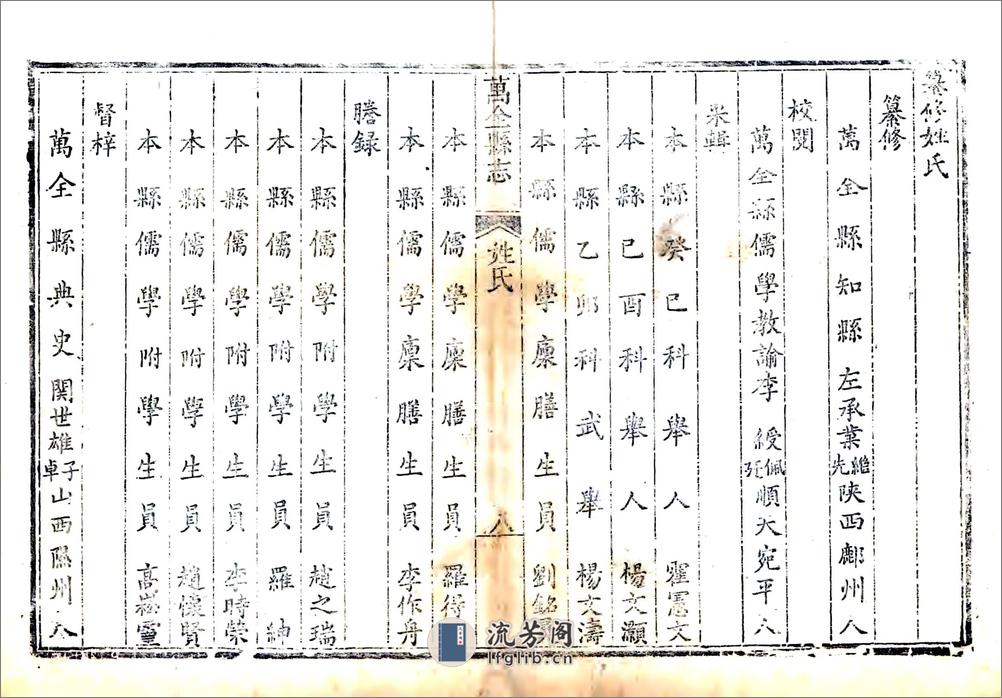 纂修姓氏
纂修
萬全縣知縣左承業繼先陝西鄜州人
校閱
萬全縣儒學教諭李綬佩廷順天宛平人
采輯
本縣癸巳科舉人霍憲文
本縣己酉科舉人楊文灝
本縣乙卯科武舉楊文濤
本縣儒學廩膳生員劉銘
萬全縣志
姓氏
八
本縣儒學廩膳生員羅得
本縣儒學廩膳生員李作舟
謄録
本縣儒學附學生員趙之瑞
本縣儒學附學生員羅紳
本縣儒學附學生員李時榮
本縣儒學附學生員趙懷賢
本縣儒學附學生員高崧靈
督梓
萬全縣典史関世雄子卓山西隰州人
流芳阁
lfglib.cn